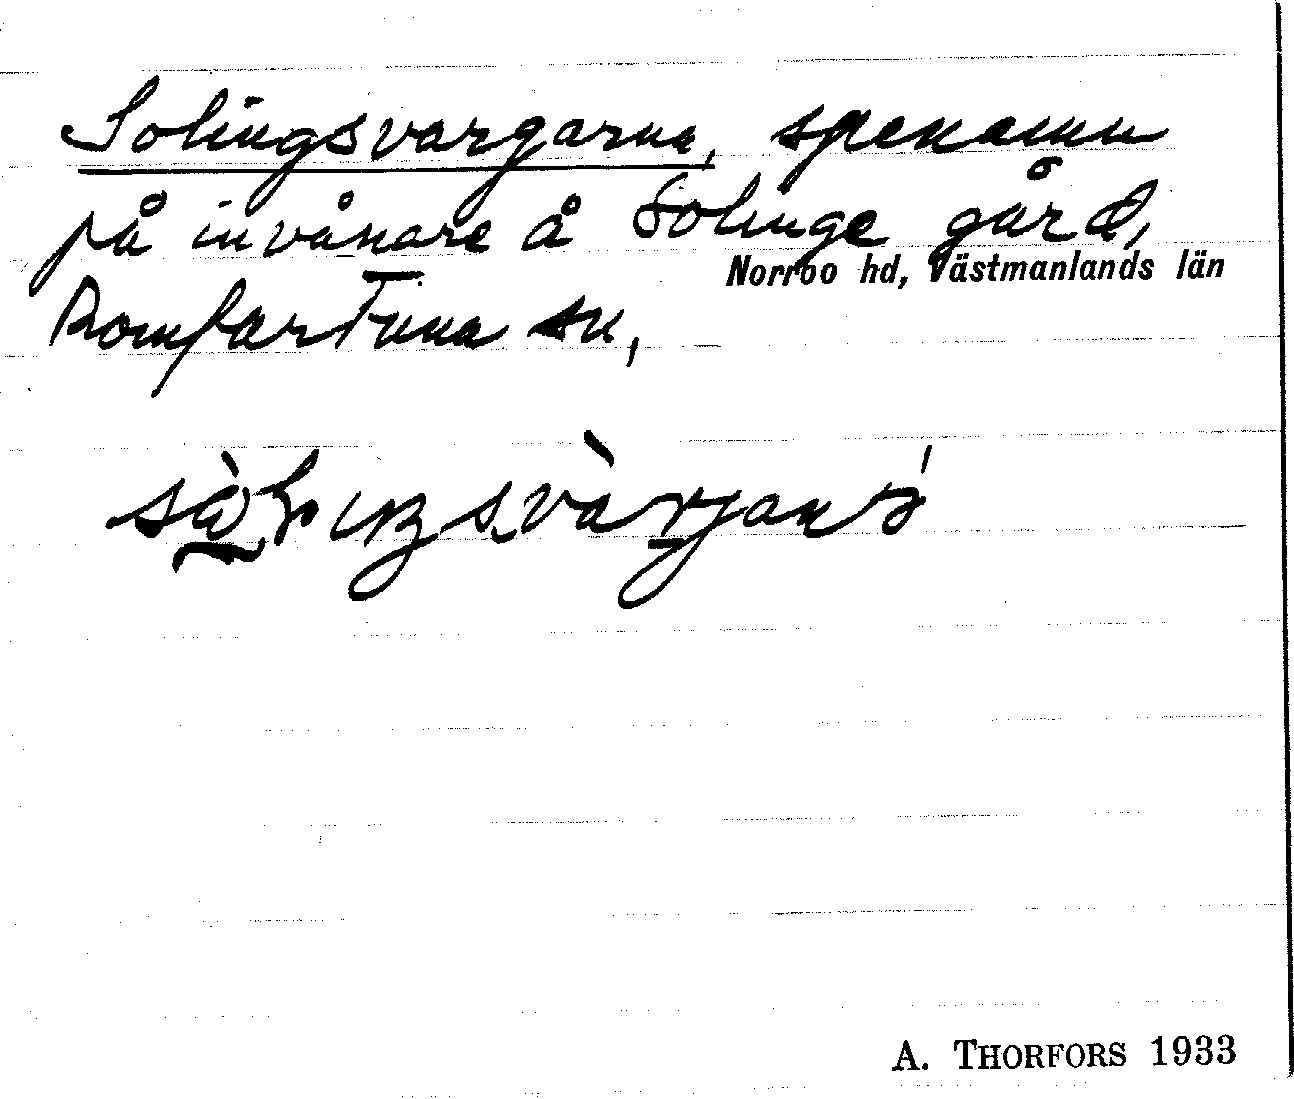 Solingsvargarna, speנamn
på invånare å Solinge gård,
Norrbo hd, Västmanlands län
Romfartuna sn,
A. THORFORS 1933